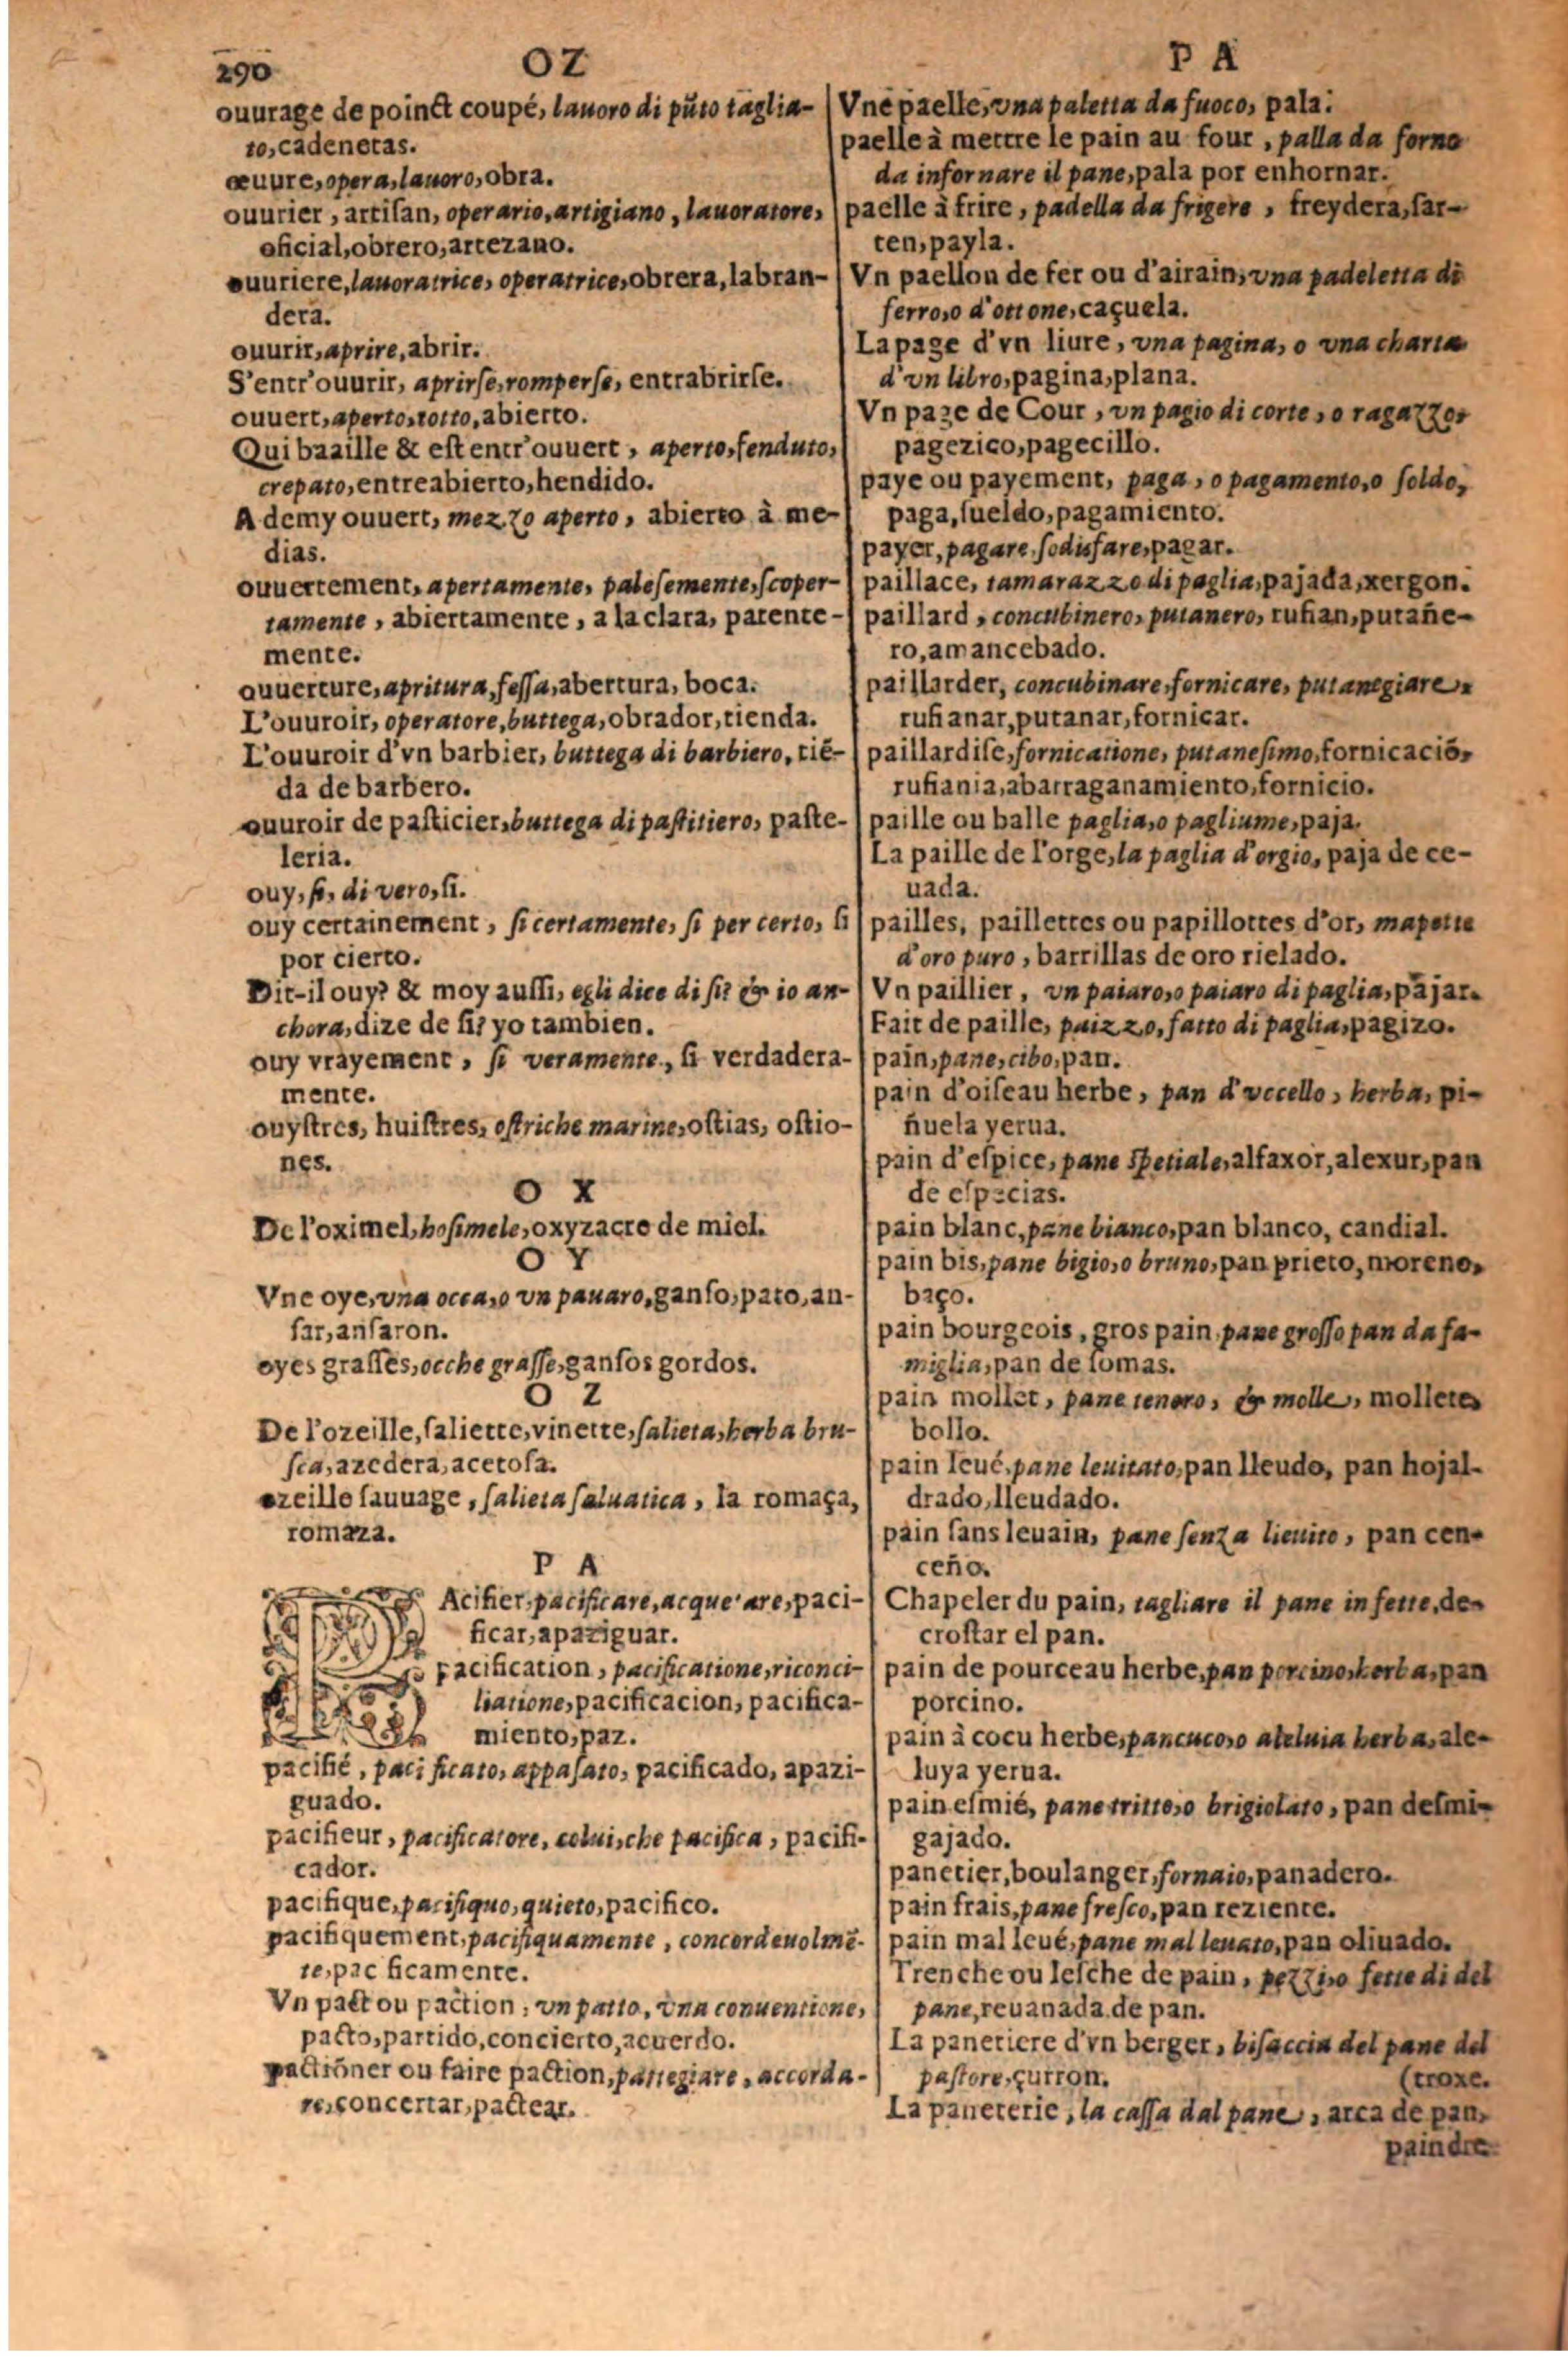 290
OZ
ouurage de poinct coupé, lauoro di pũto taglia-
to, cadenetas.
œuure, opera, lauoro, obra.
ouurier, artiſan, operario, artigiano, lauoratore,
oficial, obrero, artezano.
ouuriere, lauoratrice, operatrice, obrera, labran-
dera.
ouurir, aprire, abrir.
S'entr'ouurir, aprirſe, romperſe, entrabrirſe.
ouuert, aperto, rotto, abierto.
Qui baaille & eſt entr'ouuert, aperto, fenduto,
crepato, entreabierto, hendido.
A demy ouuert, mezzo aperto, abierto à me-
dias.
ouuertement, apertamente, paleſemente, ſcoper-
tamente, abiertamente, a la clara, patente-
mente.
ouuerture, apritura, feſſa, abertura, boca.
L'ouuroir, operatore, buttega, obrador, tienda.
L'ouuroir d'vn barbier, buttega di barbiero, tiẽ-
da de barbero.
ouuroir de paſticier, buttega di paſtitiero, paſte-
leria.
ouy, ſi, di vero, ſi.
ouy certainement, ſi certamente, ſi per certo, ſi
por cierto.
Dit-il ouy? & moy auſſi, egli dice di ſi? & io an-
chora, dize de ſi? yo tambien.
ouy vrayement, ſi veramente, ſi verdadera-
mente.
ouyſtres, huiſtres, oſtriche marine, oſtias, oſtio-
nes.
O X
De l'oximel, hoſimele, oxyzacre de miel.
O Y
Vne oye, vna occa, o vn pauaro, ganſo, pato, an-
ſar, anſaron.
oyes graſſes, ocche graſſe, ganſos gordos.
O Z
De l'ozeille, ſaliette, vinette, ſalieta, herba bru-
ſca, azedera, acetoſa.
ozeille ſauuage, ſalieta ſaluatica, la romaça,
romaza.
P A
PAcifier, pacificare, acquetare, paci-
ficar, apaziguar.
pacification, pacificatione, riconci-
liatione, pacificacion, pacifica-
miento, paz.
pacifié, pacificato, appaſato, pacificado, apazi-
guado.
pacifieur, pacificatore, colui, che pacifica, pacifi-
cador.
pacifique, pacifiquo, quieto, pacifico.
pacifiquement, pacifiquamente, concordeuolmẽ-
te, pac ficamente.
Vn pact ou paction, vn patto, vna conuentione,
pacto, partido, concierto, acuerdo.
pactiõner ou faire paction, pattegiare, accorda-
re, concertar, pactear.
P A
Vne paelle, vna paletta da fuoco, pala.
paelle à mettre le pain au four, palla da forno
da infornare il pane, pala por enhornar.
paelle à frire, padella da frigere, freydera, ſar-
ten, payla.
Vn paellon de fer ou d'airain, vna padeletta di
ferro, o d'ottone, caçuela.
La page d'vn liure, vna pagina, o vna charta
d'vn libro, pagina, plana.
Vn page de Cour, vn pagio di corte, o ragazzo,
pagezico, pagecillo.
paye ou payement, paga, o pagamento, o ſoldo,
paga, ſueldo, pagamiento.
payer, pagare, ſodisfare, pagar.
paillace, tamarazzo di paglia, pajada, xergon.
paillard, concubinero, putanero, rufian, putañe-
ro, amancebado.
paillarder, concubinare, fornicare, putanegiare,
rufianar, putanar, fornicar.
paillardiſe, fornicatione, putaneſimo, fornicaciõ,
rufiania, abarraganamiento, fornicio.
paille ou balle paglia, o pagliume, paja.
La paille de l'orge, la paglia d'orgio, paja de ce-
uada.
pailles, paillettes ou papillottes d'or, mapette
d'oro puro, barrillas de oro rielado.
Vn paillier, vn paiaro, o paiaro di paglia, pajar.
Fait de paille, paizzo, fatto di paglia, pagizo.
pain, pane, cibo, pan.
pain d'oiſeau herbe, pan d'vccello, herba, pi-
ñuela yerua.
pain d'eſpice, pane ſpetiale, alfaxor, alexur, pan
de eſpecias.
pain blanc, pane bianco, pan blanco, candial.
pain bis, pane bigio, o bruno, pan prieto, moreno,
baço.
pain bourgeois, gros pain, pane groſſo pan da fa-
miglia, pan de ſomas.
pain mollet, pane tenero, & molle, mollete,
bollo.
pain leué, pane leuitato, pan lleudo, pan hojal-
drado, lleudado.
pain ſans leuain, pane ſenza lieuito, pan cen-
ceño.
Chapeler du pain, tagliare il pane in fette, de-
croſtar el pan.
pain de pourceau herbe, pan porcino, herba, pan
porcino.
pain à cocu herbe, pancuco, o aleluia herba, ale-
luya yerua.
pain eſmié, pane tritto, o brigiolato, pan deſmi-
gajado.
panetier, boulanger, fornaio, panadero.
pain frais, pane freſco, pan reziente.
pain mal leué, pane mal leuato, pan oliuado.
Trenche ou leſche de pain, pezzi, o fette di del
pane, reuanada de pan.
La panetiere d'vn berger, biſaccia del pane del
paſtore, çurron.
(troxe.
La paneterie, la caſſa dal pane, arca de pan,
paindre